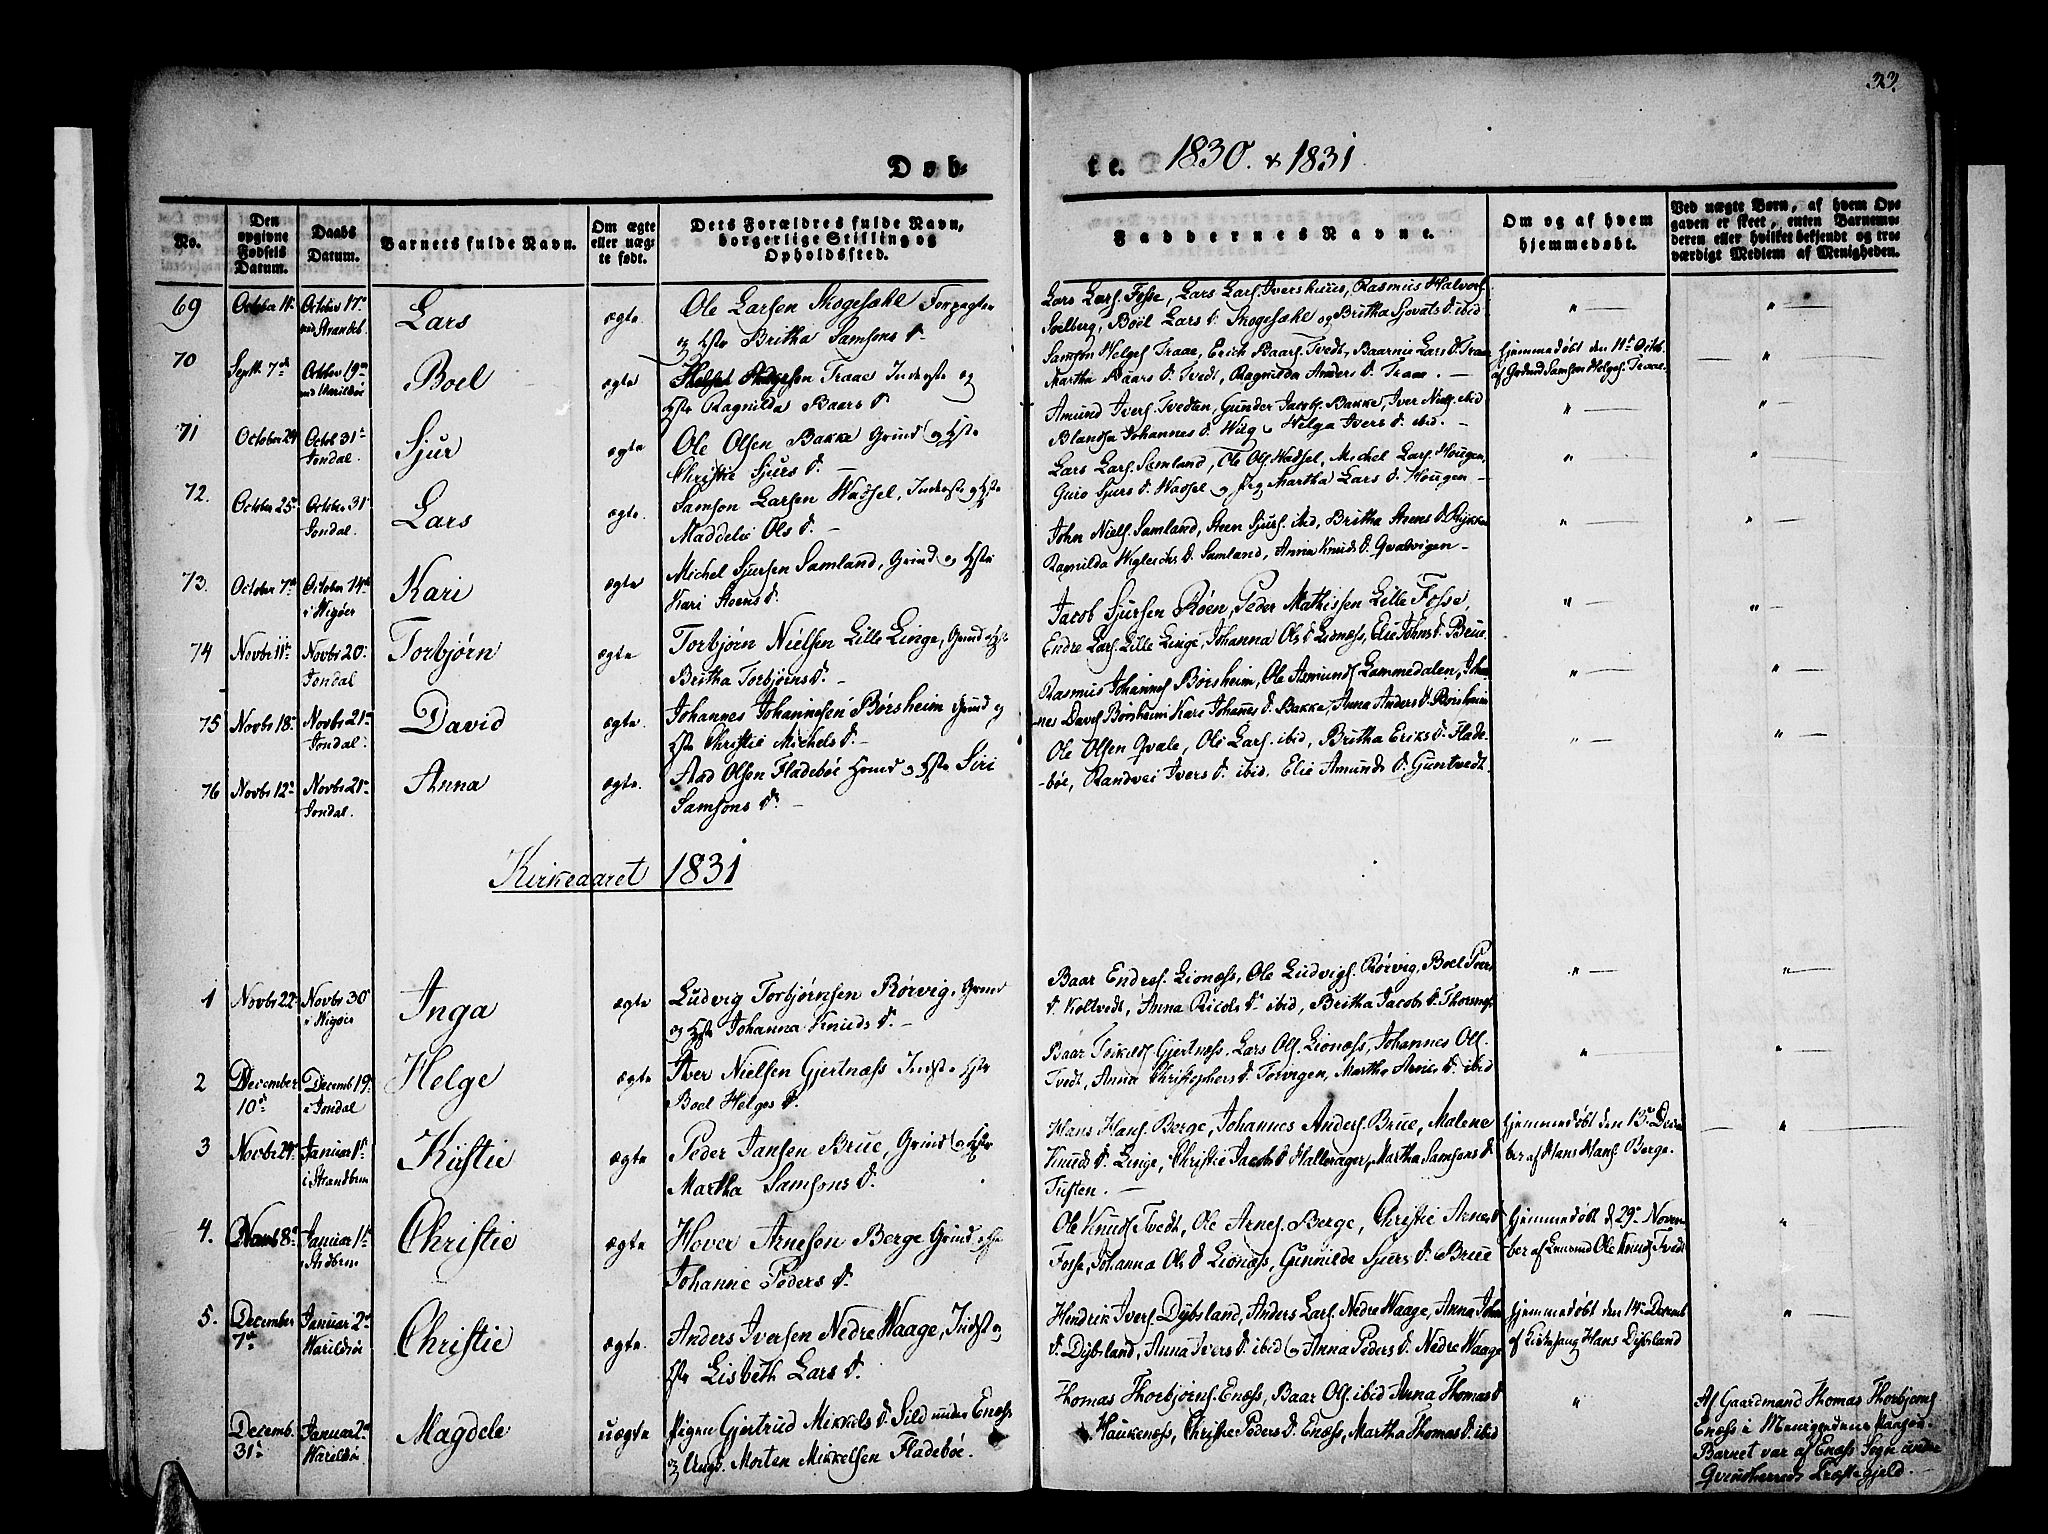 33.
Døb-
te. 1830. & 1831
No.
Den opgivne Fødsels Datum.
Daabs Datum.
Barnets fulde Navn.
Om ægte eller uægte født.
Dets Forældres fulde Navn, borgerlige Stilling og Opholdssted.
Faddernes Navne.
Om og af hvem hjemmedøbt.
Ved uægte Børn, af hvem Opgaven er skeet, enten Barnemoderen eller hvilket bekjendt og troværdigt Medlem af Menigheden.
69 October 17de Lars ægte Ole Larsen Skogesæhl
og Hste Britha Samsons D.
Lars Lars. Fosse, Lars Lars. Ivershuus, Rasmus Halvors.
Solberg, Boël Lars D. Skogesæhl og Britha Sjovats D. ibid
70 Septb. 7de October 19de Boel ægte Traae Inderste og
Hste Ragnilda Baars D.
Samson Helges. Traae, Erich Baars. Tvedt, Baarnie Lars D. Traae
Martha Baars D. Tvedt, Ragnilda Anders D. Traae. —
Hjemmedøbt den 11te Octob.
af Samson Helges. Traae.
71 October 24 Octob 31te Jondal. Sjur ægte Ole Olsen Bakke Grmd og Hste
Christie Sjurs D.
Amund Ivers. Tvedtan, Gunder Jacobs. Bakke, Iver Niels. ibid
Johannes D. Helga Ivers D. ibid. —
72. October 25de October 31te Jondal. Lars ægte. Samson Larsen Wadsel, Inderste og Hste
Maddelie Ols D. —
Lars Lars. Samland, Ole Ols. Wadsel, Michel Lars. Hougen,
Guro Sjurs D. Wadsel og Martha Lars D. Hougen —
73. October 7de October 14de i Wigøer Kari ægte Michel Sjursen Samland, Grmd og Hste
Kari Steens D.
John Niels. Samland, Steen Sjurs. ibid, Britha Steens D.
Ramilda D. Samland, Anna Knuds D. Qvalvigen —
74 Novbr 11te Novbr 20 Jondal Torbjørn ægte Torbjørn Nielsen Lille Linge, Grmd
Britha Torbjørns D. —
Jacob Sjursen Røen, Peder Mathissen Lille Fosse,
Endre Lars. Lille Linge, Johanna Ols D. Lionæss, Elie Johns D. Brue.
75 Novbr 18de Novbr 21de Jondal. David ægte. Johannes Johannesen Børsheim Grmd og
Hste Christie Michels D. —
Rasmus Johannes. Børsheim, Ole Asmunds. Lammedalen, Johan-
nes Davids. Børsheim Kari Johannes D. Bakke, Anna Anders D. Børsheim
76 Novbr 12te Novbr 21de Jondal. Anna ægte. Aad Olsen Fladebøe Grmd og Hste Siri
Samsons D. —
Ole Olsen Qvale, Ole Lars. ibid, Britha Eriks D. Flade-
-bøe, Randvei Ivers D. ibid. Elie Amunds D. Guntvedt
Kirkeaaret 1831
1 Novbr 22de Novbr 30 i Wigøer Inga ægte Ludvig Torbjørnsen Rørvig, Grmd
og Hste Johanna Knuds D. —
Baar Endres. Lionæss, Ole Ludvigs. Rørvig, Boel Peers
D. Koltvedt, Anna Nicols D. ibid, Britha Jacobs D.
2 December 10de Decemb 19 i Jondal Helge ægte Iver Nielsen Gjertnæss Indste og Hste
Boel Helges D.
Baar Torkelds. Gjertnæss, Lars Ols. Lionæss, Johannes Ols.
Tvedt, Anna Christophers D. Torvigen, Martha Arnes D. ibid
3 Novbr 24de Januar 1te i Strandbm Kiistie ægte Peder Jansen Brue, Grmd og Hste
Martha Samsons D.
Hans Hans. Berge, Johannes Anders. Brue, Malene
Knuds D. Linge, Christie Jacobs D. Hallerager, Martha Samsons D
Tusten. —
Hjemmedøbt den 13de Decem
ber af Hans Hans. Berge.
4. Novb 8de Januar 1te Christie ægte Hover Arnesen Berge Grmd og Hste
Johanne Peders D.
Ole Knuds. Tvedt, Ole Arnes. Berge, Christie Arnes D
Fosse, Johanna Ols D Lionæss, Gunnilde Sjurs D. Brue
Hjemmedøbt d 29de Novem
ber af Ole Knuds. Tvedt
5. December 7de Januar 2de Warildsøe Christie ægte. Anders Iversen Nedre Waage, Indst og
Hste Lisbeth Lars D.
Hendrik Ivers. Dybsland, Anders Lars. Nedre Waage, Anna Johan
D. Dybsland, Anna Ivers D. ibid og Anna Peders D. Nedre Waage
Hjemmedøbt den 14de Decemb
af Kirkesang. Hans Dybsland
Decemb. 31te Januar 2de Warildsøe Magdele uægte Pigen Gjertrud Mikkels D. Sild under Enæss
og Ungk. Morten Mikkelsen Fladebøe.
Thomas Thorbjørns. Enæss, Baar Ols. ibid Anna Thomas D
Haukenæss, Christie Peders D. Enæss, Martha Thomas D. ibid
Af Gaardmand Thomas Thorbjørns.
Enæss i
Barnet var af Enæss Sogn under
Qvindherreds Præstegjeld. —